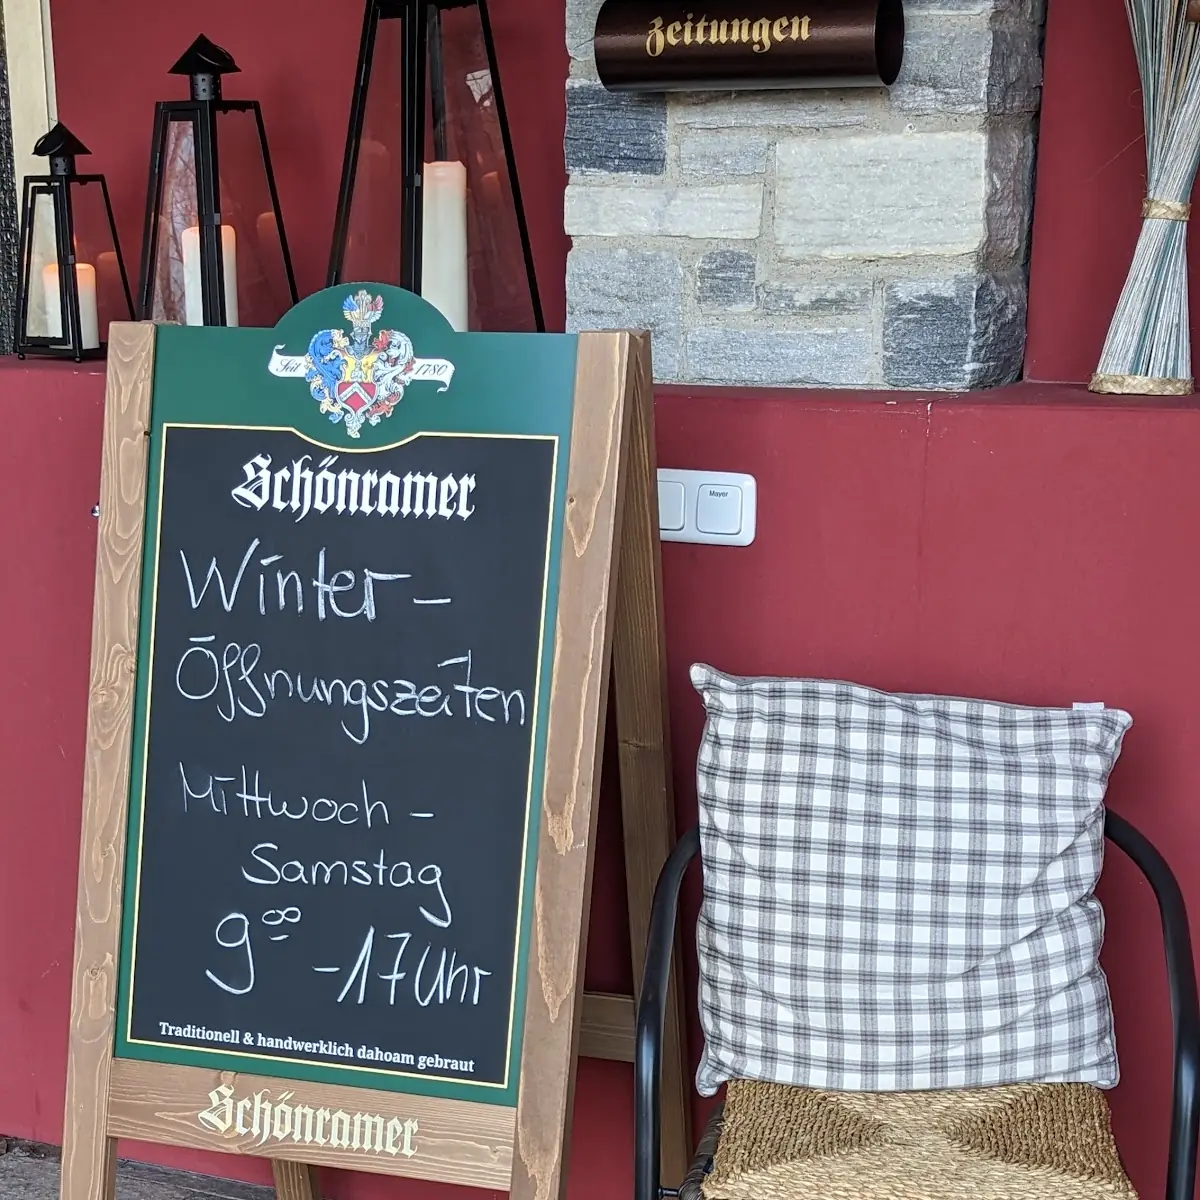 Zeitungen
Seit 1780
Schönramer
Mayer
Winter-
Öffnungszeiten
Mittwoch -
Samstag
9⁰⁰ - 17 Uhr
Traditionell & handwerklich dahoam gebraut
Schönramer